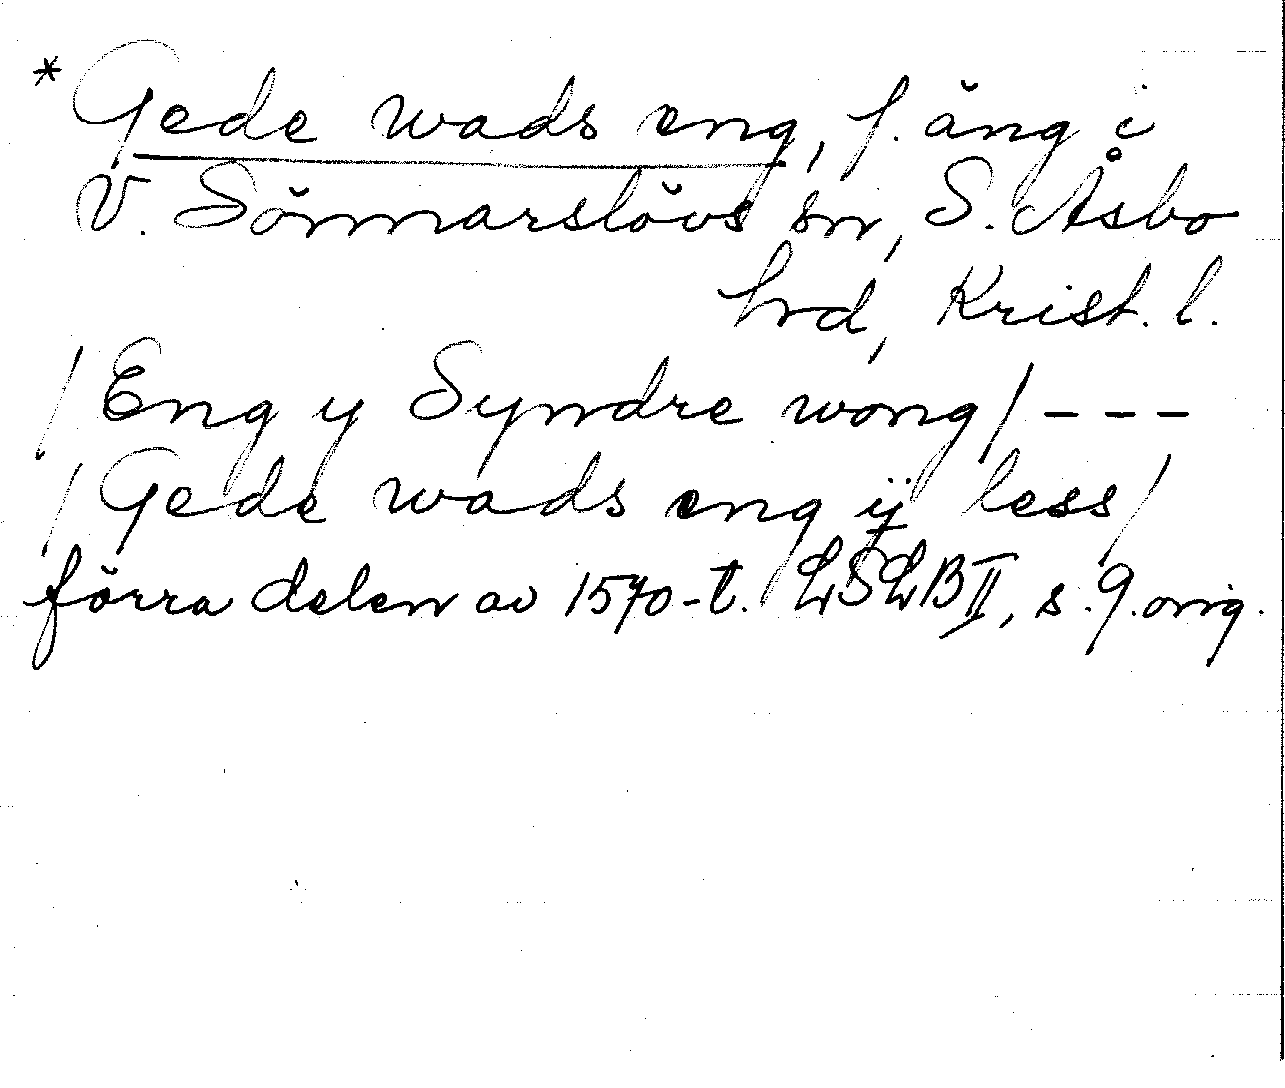 * Gede wads eng, f. äng i
V. Sönnarslövs sn, S. Åsbo
hrd, Krist. l.
/Eng y Syndre wong/ - - -
/Gede wads eng ÿ less/
förra delen av 1570-t. LSLB II, s. 9. orig.